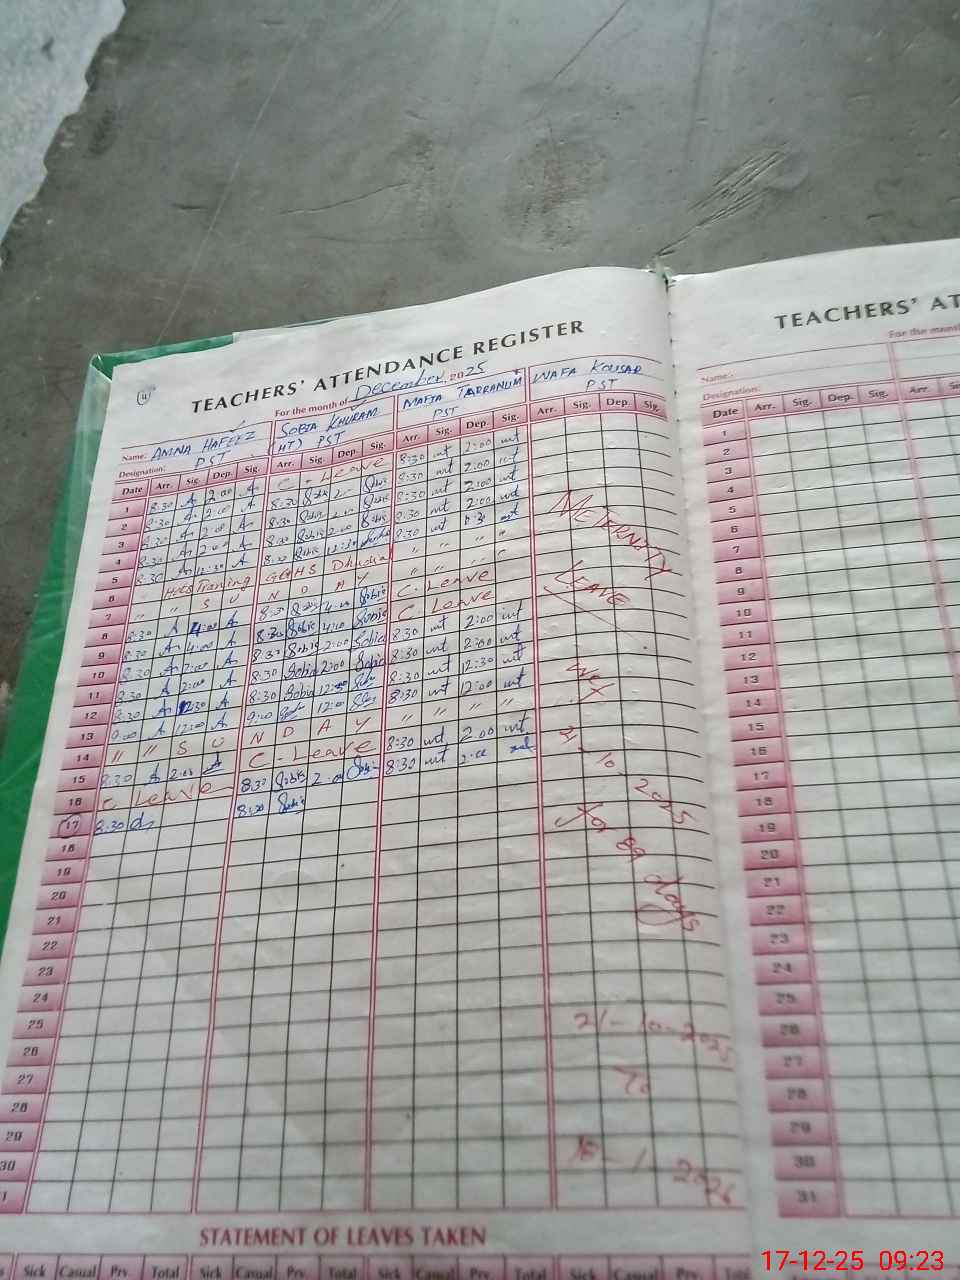 4
TEACHERS' ATTENDANCE REGISTER
For the month of December, 2025
Name: AMNA HAFEEZ SOBIA KHURAM MAFIA TARRANUM WAFA KOUSAR
Designation: PST (HT) PST PST PST
Date Arr. Sig. Dep. Sig. Arr. Sig. Dep. Sig. Arr. Sig. Dep. Sig. Arr. Sig. Dep. Sig.
1 8:30 A 2:00 A C. Leave 8:30 mt 2:00 mt
2 8:30 A 2:00 A 8:30 Sobia 2:00 Sobia 8:30 mt 2:00 mt
3 8:30 A 2:00 A 8:30 Sobia 2:00 Sobia 8:30 mt 2:00 mt
4 8:30 A 2:00 A 8:30 Sobia 2:00 Sobia 8:30 mt 2:00 mt
5 8:30 A 12:30 A 8:30 Sobia 12:30 8:30 mt mt
6 Training GGHS Dhudial " " " "
7 " " S U N D A Y " " " "
8 8:30 A 4:00 A 8:30 Sobia 4:00 Sobia C. Leave
9 8:30 A 4:00 A 8:30 Sobia 4:00 Sobia C. Leave
10 8:30 A 2:00 A 8:30 Sobia 2:00 Sobia 8:30 mt 2:00 mt
11 8:30 A 2:00 A 8:30 Sobia 2:00 Sobia 8:30 mt 2:00 mt
12 8:30 A 12:30 A 8:30 Sobia 12:30 8:30 mt 12:30 mt
13 9:00 A 12:00 A 9:00 12:00 8:30 mt 12:00 mt
14 " " S U N D A Y " " " "
15 8:30 A 2:00 A C. Leave 8:30 mt 2:00 mt
16 C. Leave 8:30 Sobia 2:00 Sobia 8:30 mt 2:00 mt
17 8:30 8:30 Sobia
18
19
20
21
22
23
24
25
26
27
28
29
30
1
METERNITY
LEAVE
wef
21-10-2025
For 89 days
21-10-2025
To
-1-2026
STATEMENT OF LEAVES TAKEN
s Sick Casual Prv. Total Sick Casual Prv. Total Sick Casual Prv. Total Sick Casual Prv.
TEACHERS' AT
For the month
Name:
Designation:
Date Arr. Sig. Dep. Sig. Arr. Sig.
1
2
3
4
5
6
7
8
9
10
11
12
13
14
15
16
17
18
19
20
21
22
23
24
25
26
27
28
29
30
31
17-12-25 09:23